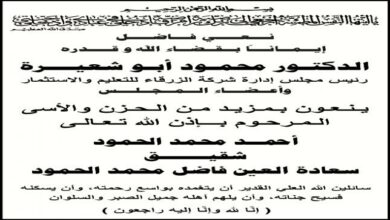 نعي فاضل
إيماناً بقضاء الله وقدره
الدكتور محمود أبو شعيرة
رئيس مجلس إدارة شركة الزرقاء للتعليم والاستثمار
وأعضاء المجلس
ينعون بمزيد من الحزن والأسى
المرحوم بإذن الله تعالى
أحمد محمد الحمود
شقيق
سعادة العين فاضل محمد الحمود
سائلين الله العلي القدير أن يتغمده بواسع رحمته، وأن يسكنه
فسيح جناته، وأن يلهم أهله جميل الصبر والسلوان
( إنا لله وإنا إليه راجعون )